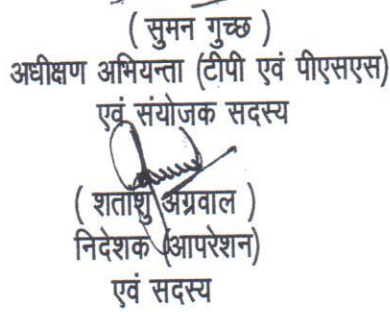 ( सुमन गुच्छ )
अधीक्षण अभियन्ता (टीपी एवं पीएसएस)
एवं संयोजक सदस्य
( शताशु अग्रवाल )
निदेशक (आपरेशन)
एवं सदस्य